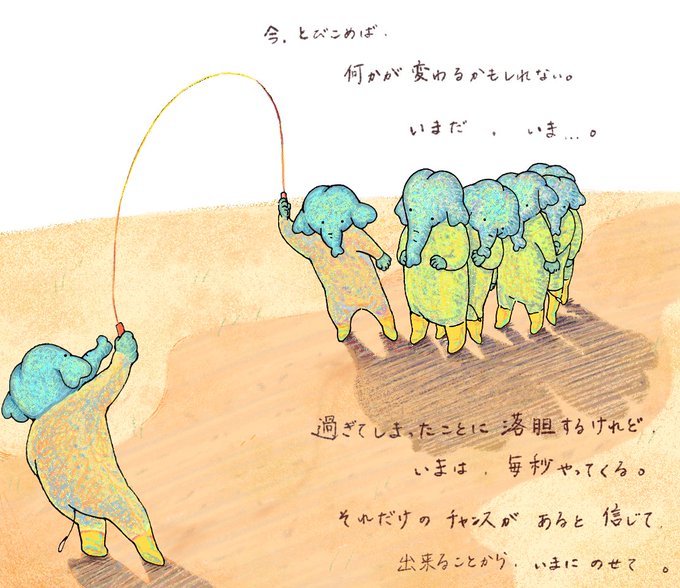 今、とびこめば、
何かが変わるかもしれない。
いまだ、いま…。
過ぎてしまったことに落胆するけれど、
いまは、毎秒やってくる。
それだけのチャンスがあると信じて、
出来ることから、いまにのせて。